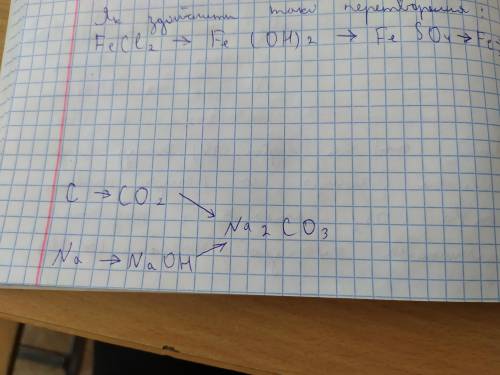 Як здійснити такі перетворення:
FeCl2 → Fe (OH)2 → Fe SO4 → Fe
C → CO2
Na2CO3
Na → NaOH